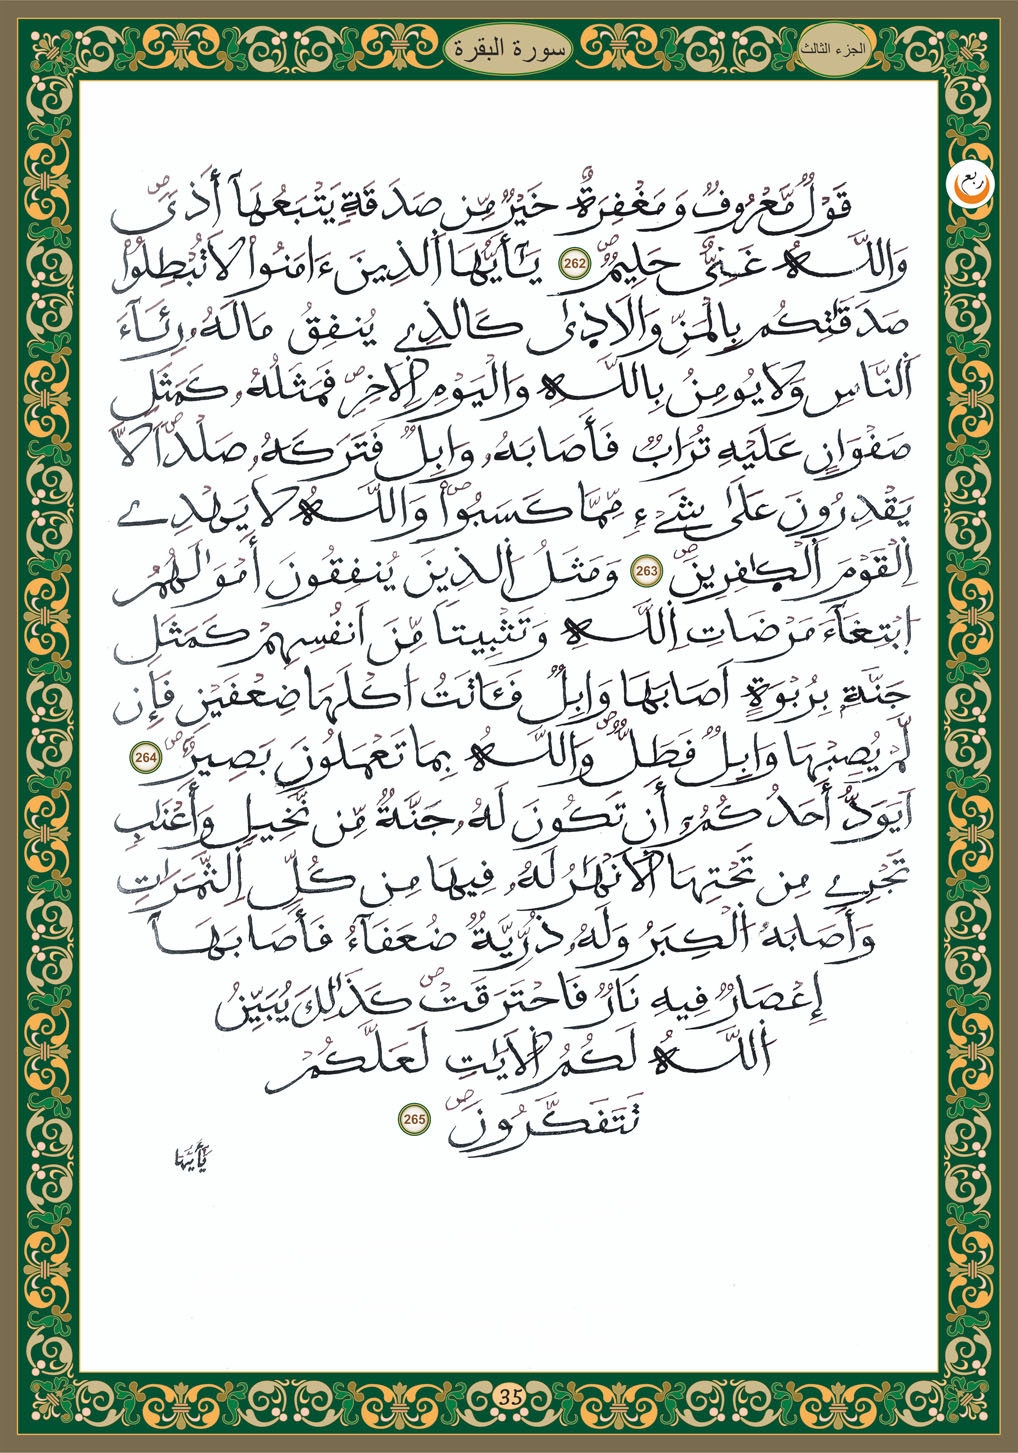 الجزء الثالث
سورة البقرة
ربع
قَوْلٌ مَّعْرُوفٌ وَمَغْفِرَةٌ خَيْرٌ مِّن صَدَقَةٍ يَتْبَعُهَآ أَذىًۖ
وَاللَّهُ غَنِيٌّ حَلِيمٌۖ 262 يَٰٓأَيُّهَا اَلذِينَ ءَامَنُواْ لَا تُبْطِلُواْ
صَدَقَٰتِكُم بِالْمَنِّ وَالَاذ۪يٰ كَالذِے يُنفِقُ مَالَهُۥ رِئَآءَ
اَلنَّاسِ وَلَا يُومِنُ بِاللَّهِ وَالْيَوْمِ اِلَاخِرِۖ فَمَثَلُهُۥ كَمَثَلِ
صَفْوَانٍ عَلَيْهِ تُرَابٌ فَأَصَابَهُۥ وَابِلٌ فَتَرَكَهُۥ صَلْداًۖ لَّا
يَقْدِرُونَ عَلَىٰ شَےْءٍ مِّمَّا كَسَبُواْۖ وَاللَّهُ لَا يَهْدِے
اِلْقَوْمَ اَلْكٰ۪فِرِينَۖ 263 وَمَثَلُ اُلذِينَ يُنفِقُونَ أَمْوَٰلَهُمُ
اُبْتِغَآءَ مَرْضَاتِ اِللَّهِ وَتَثْبِيتاً مِّنَ اَنفُسِهِمْ كَمَثَلِ
جَنَّةِۢ بِرُبْوَةٍ اَصَابَهَا وَابِلٌ فَـَٔاتَتُ ا۟كْلَهَا ضِعْفَيْنِ فَإِن
لَّمْ يُصِبْهَا وَابِلٌ فَطَلٌّۖ وَاللَّهُ بِمَا تَعْمَلُونَ بَصِيرٌۖ 264
اَيَوَدُّ أَحَدُكُمُۥٓ أَن تَكُونَ لَهُۥ جَنَّةٌ مِّن نَّخِيلٍ وَأَعْنَٰبٍ
تَجْرِے مِن تَحْتِهَا اَلَانْهَٰرُ لَهُۥ فِيهَا مِن كُلِّ اِلثَّمَرَٰتِ
وَأَصَابَهُ اُلْكِبَرُ وَلَهُۥ ذُرِّيَّةٌ ضُعَفَآءُ فَأَصَابَهَآ
إِعْصَارٌ فِيهِ نَارٌ فَاحْتَرَقَتْۖ كَذَٰلِكَ يُبَيِّنُ
اُللَّهُ لَكُمُ اُلَايَٰتِ لَعَلَّكُمْ
تَتَفَكَّرُونَۖ 265
يَٰٓأَيُّهَا
35